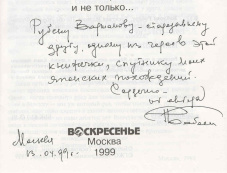 и не только...
Рубену Варшамову – стародавнему
другу, одному из героев этой
книжечки, спутнику моих
японских похождений.
Сердечно –
от автора
Москва
13.04.99г.
ВОСКРЕСЕНЬЕ
Москва
1999